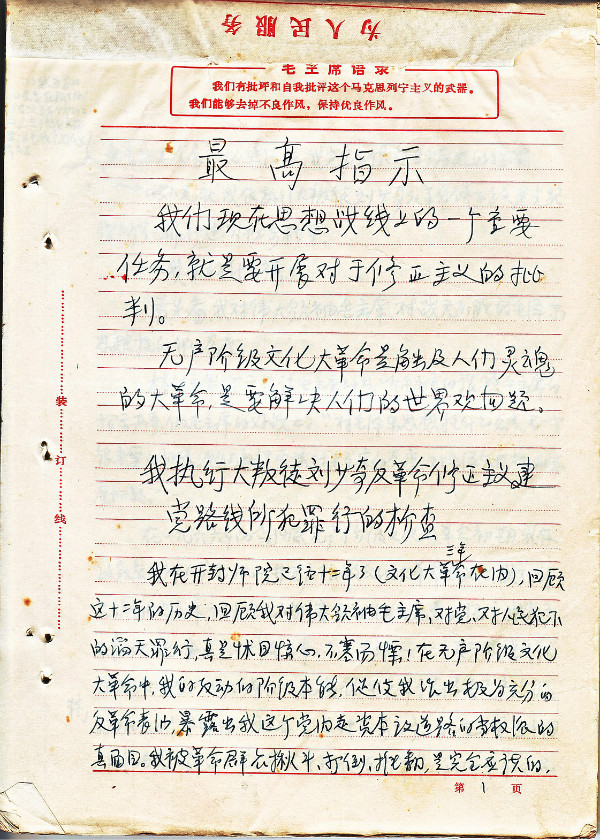 为人民服务
毛主席语录
我们有批评和自我批评这个马克思列宁主义的武器。
我们能够去掉不良作风，保持优良作风。
最高指示
我们现在思想战线上的一个重要
任务，就是要开展对于修正主义的批
判。
无产阶级文化大革命是触及人们灵魂
的大革命，是要解决人们的世界观问题。
我执行大叛徒刘少奇反革命修正主义建
党路线所犯罪行的检查
我在开封师院已经十二年了（文化大革命三年在内），回顾
这十二年的历史，回顾我对伟大领袖毛主席、对党、对人民犯下
的滔天罪行，真是怵目惊心，不寒而慄！在无产阶级文化
大革命中，我的反动的阶级本能，促使我作出极为充分的
反革命表演，暴露出我这个党内走资本主义道路的当权派的
真面目。我被革命群众揪斗、打倒、批判，是完全应该的，
第 1 页
装订线